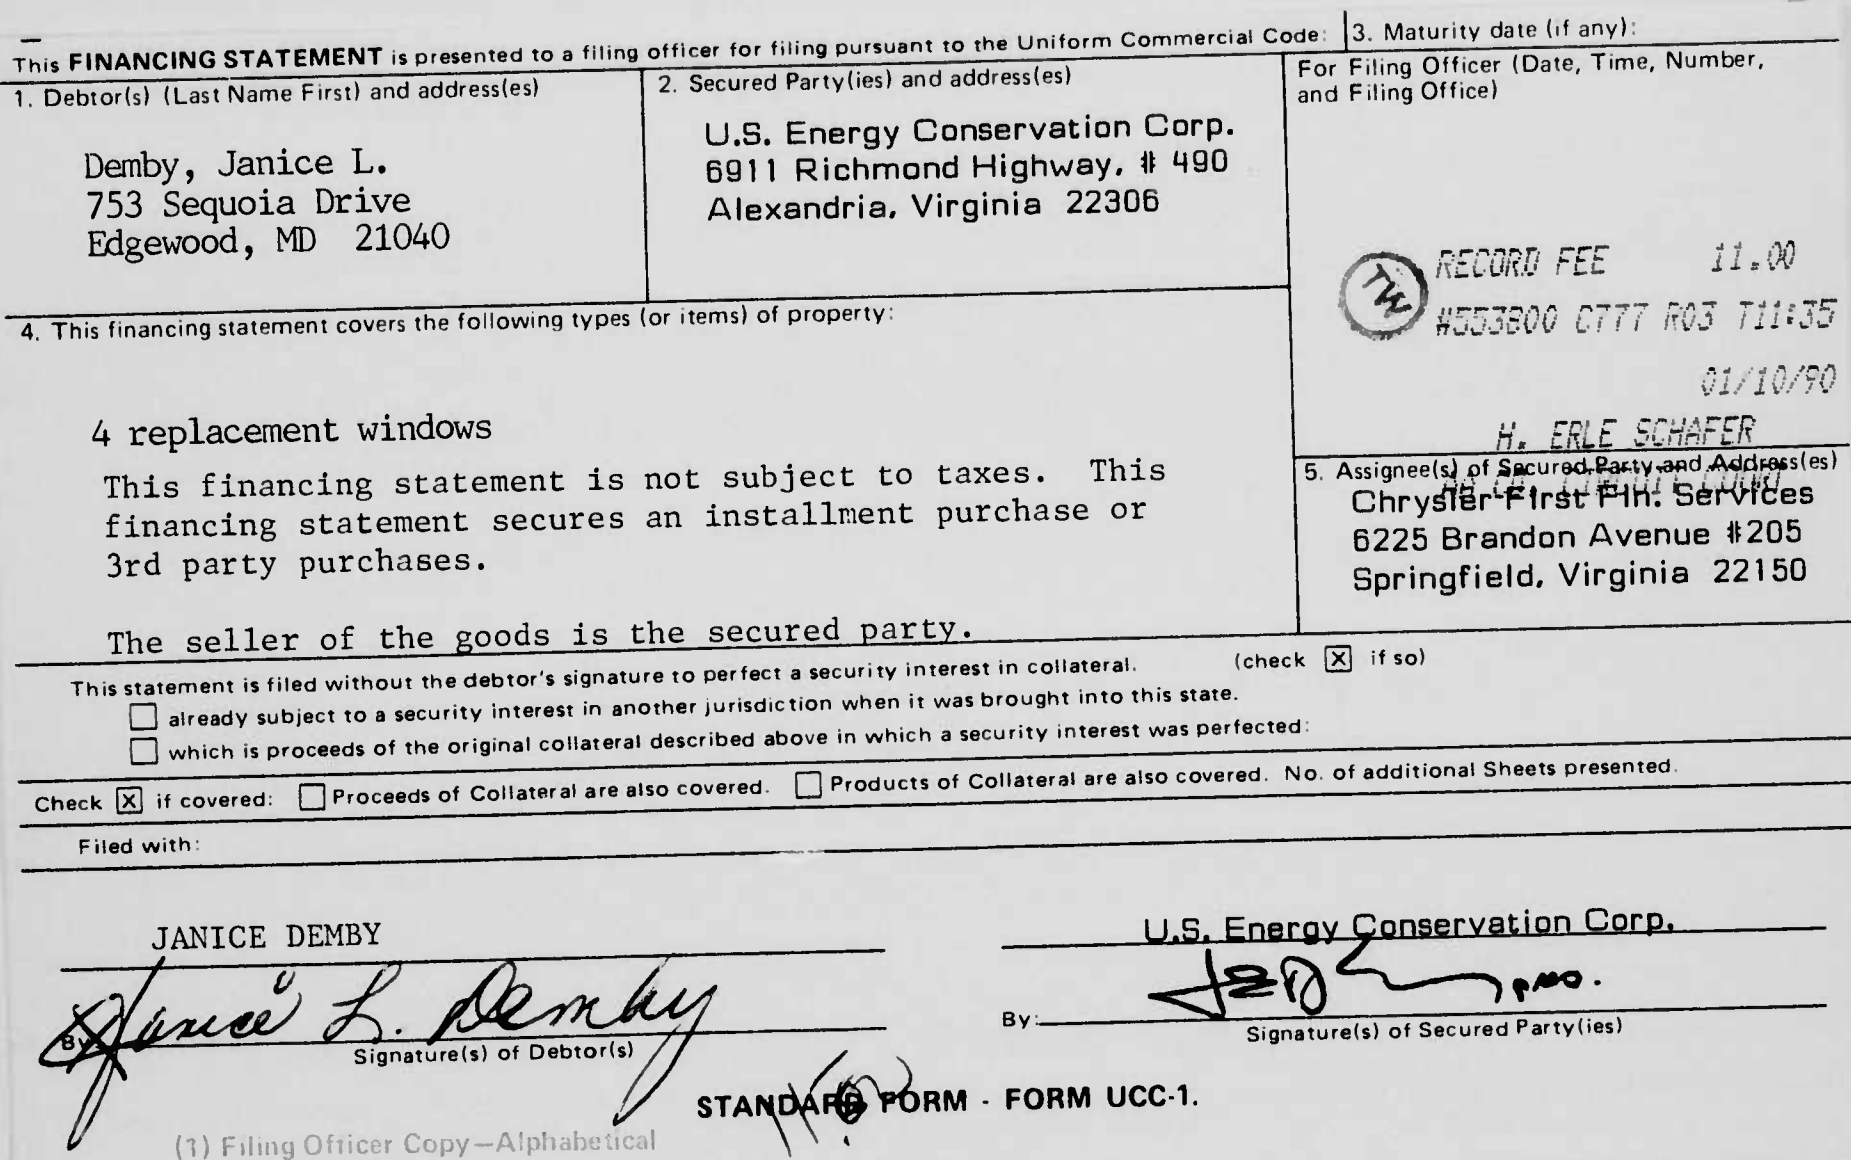 This FINANCING STATEMENT is presented to a filing officer for filing pursuant to the Uniform Commercial Code:
3. Maturity date (if any):
1. Debtor(s) (Last Name First) and address(es)
Demby, Janice L.
753 Sequoia Drive
Edgewood, MD 21040
2. Secured Party(ies) and address(es)
U.S. Energy Conservation Corp.
6911 Richmond Highway, # 490
Alexandria, Virginia 22306
For Filing Officer (Date, Time, Number,
and Filing Office)
TW
RECORD FEE 11.00
#553800 C777 R03 T11:35
01/10/90
H. ERLE SCHAFER
4. This financing statement covers the following types (or items) of property:
4 replacement windows
This financing statement is not subject to taxes. This
financing statement secures an installment purchase or
3rd party purchases.
The seller of the goods is the secured party.
5. Assignee(s) of Secured Party and Address(es)
Chrysler First Fin. Services
6225 Brandon Avenue #205
Springfield, Virginia 22150
This statement is filed without the debtor's signature to perfect a security interest in collateral. (check X if so)
already subject to a security interest in another jurisdiction when it was brought into this state.
which is proceeds of the original collateral described above in which a security interest was perfected:
Check X if covered: Proceeds of Collateral are also covered. Products of Collateral are also covered. No. of additional Sheets presented.
Filed with:
JANICE DEMBY
U.S. Energy Conservation Corp.
By Janice L. Demby
Signature(s) of Debtor(s)
By:
Signature(s) of Secured Party(ies)
STANDARD FORM - FORM UCC-1.
(1) Filing Officer Copy—Alphabetical